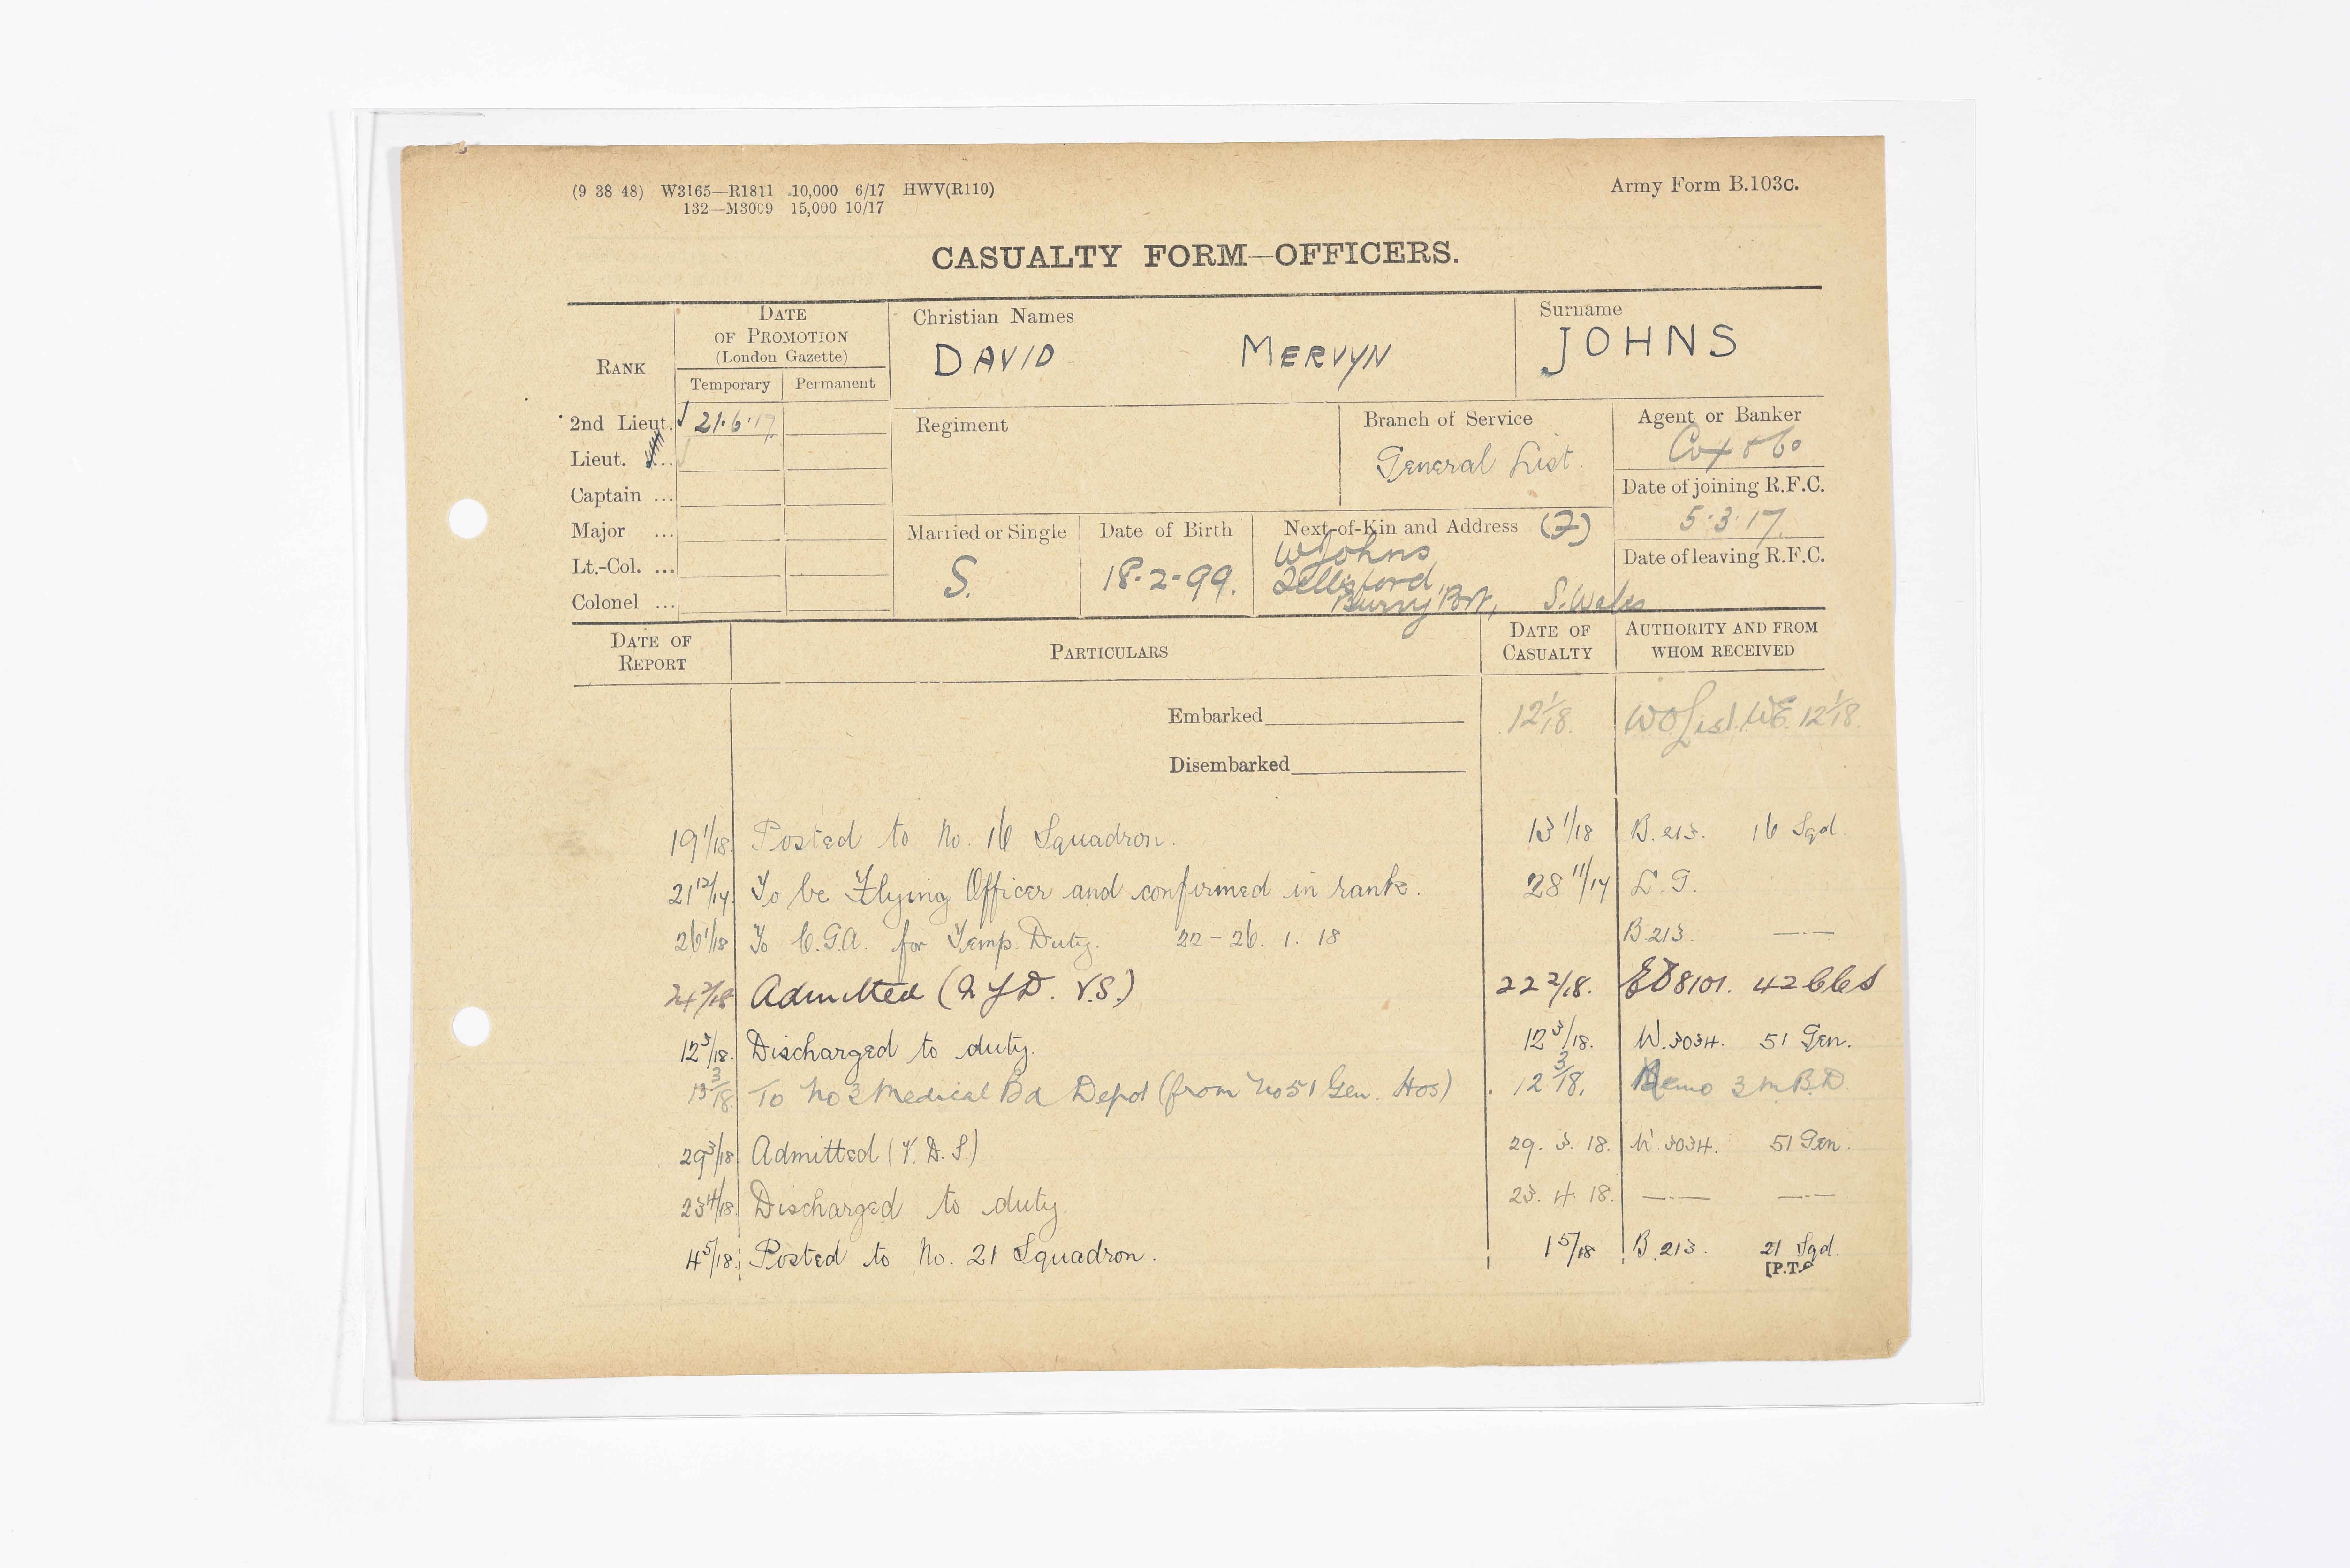 (9 38 48) W3165—R1811 10,000 6/17 HWV(R110)
132—M3009 15,000 10/17
Army Form B.103c.
CASUALTY FORM—OFFICERS.
RANK
DATE
OF PROMOTION
(London Gazette)
Temporary Permanent
Christian Names
DAVID MERVYN
Surname
JOHNS
2nd Lieut. 21.6.17
Lieut. ...
Captain ...
Major ...
Lt.-Col. ...
Colonel ...
Regiment
Branch of Service
General List.
Agent or Banker
Cox & Co
Date of joining R.F.C.
5.3.17.
Date of leaving R.F.C.
Married or Single
S.
Date of Birth
18-2-99.
Next-of-Kin and Address (F)
W Johns
Burry Port, S. Wales
DATE OF REPORT
PARTICULARS
DATE OF CASUALTY
AUTHORITY AND FROM WHOM RECEIVED
Embarked 12 1/18. WO List WE. 12 1/18.
Disembarked
19 1/18. Posted to No. 16 Squadron. 13 1/18 B.213. 16 Sqd
21 12/17. To be Flying Officer and confirmed in rank. 28 11/17 L.G.
26 1/18 To C.G.A. for Temp. Duty. 22-26. 1. 18 B.213 —·—
24 2/18 Admitted (N.Y.D. V.S.) 22 2/18. 8101. 42 CCS
12 3/18. Discharged to duty. 12 3/18. W.3034. 51 Gen.
13 3/18. To No 3 Medical Bd Depot (from No 51 Gen. Hos) 12 3/18. Memo 3 M.B.D.
29 3/18 Admitted (V.D.S.) 29. 3. 18. W.3034. 51 Gen.
23 4/18. Discharged to duty. 23. 4. 18. —·— —·—
4 5/18. Posted to No. 21 Squadron. 1 5/18 B.213. 21 Sqd.
[P.T.O